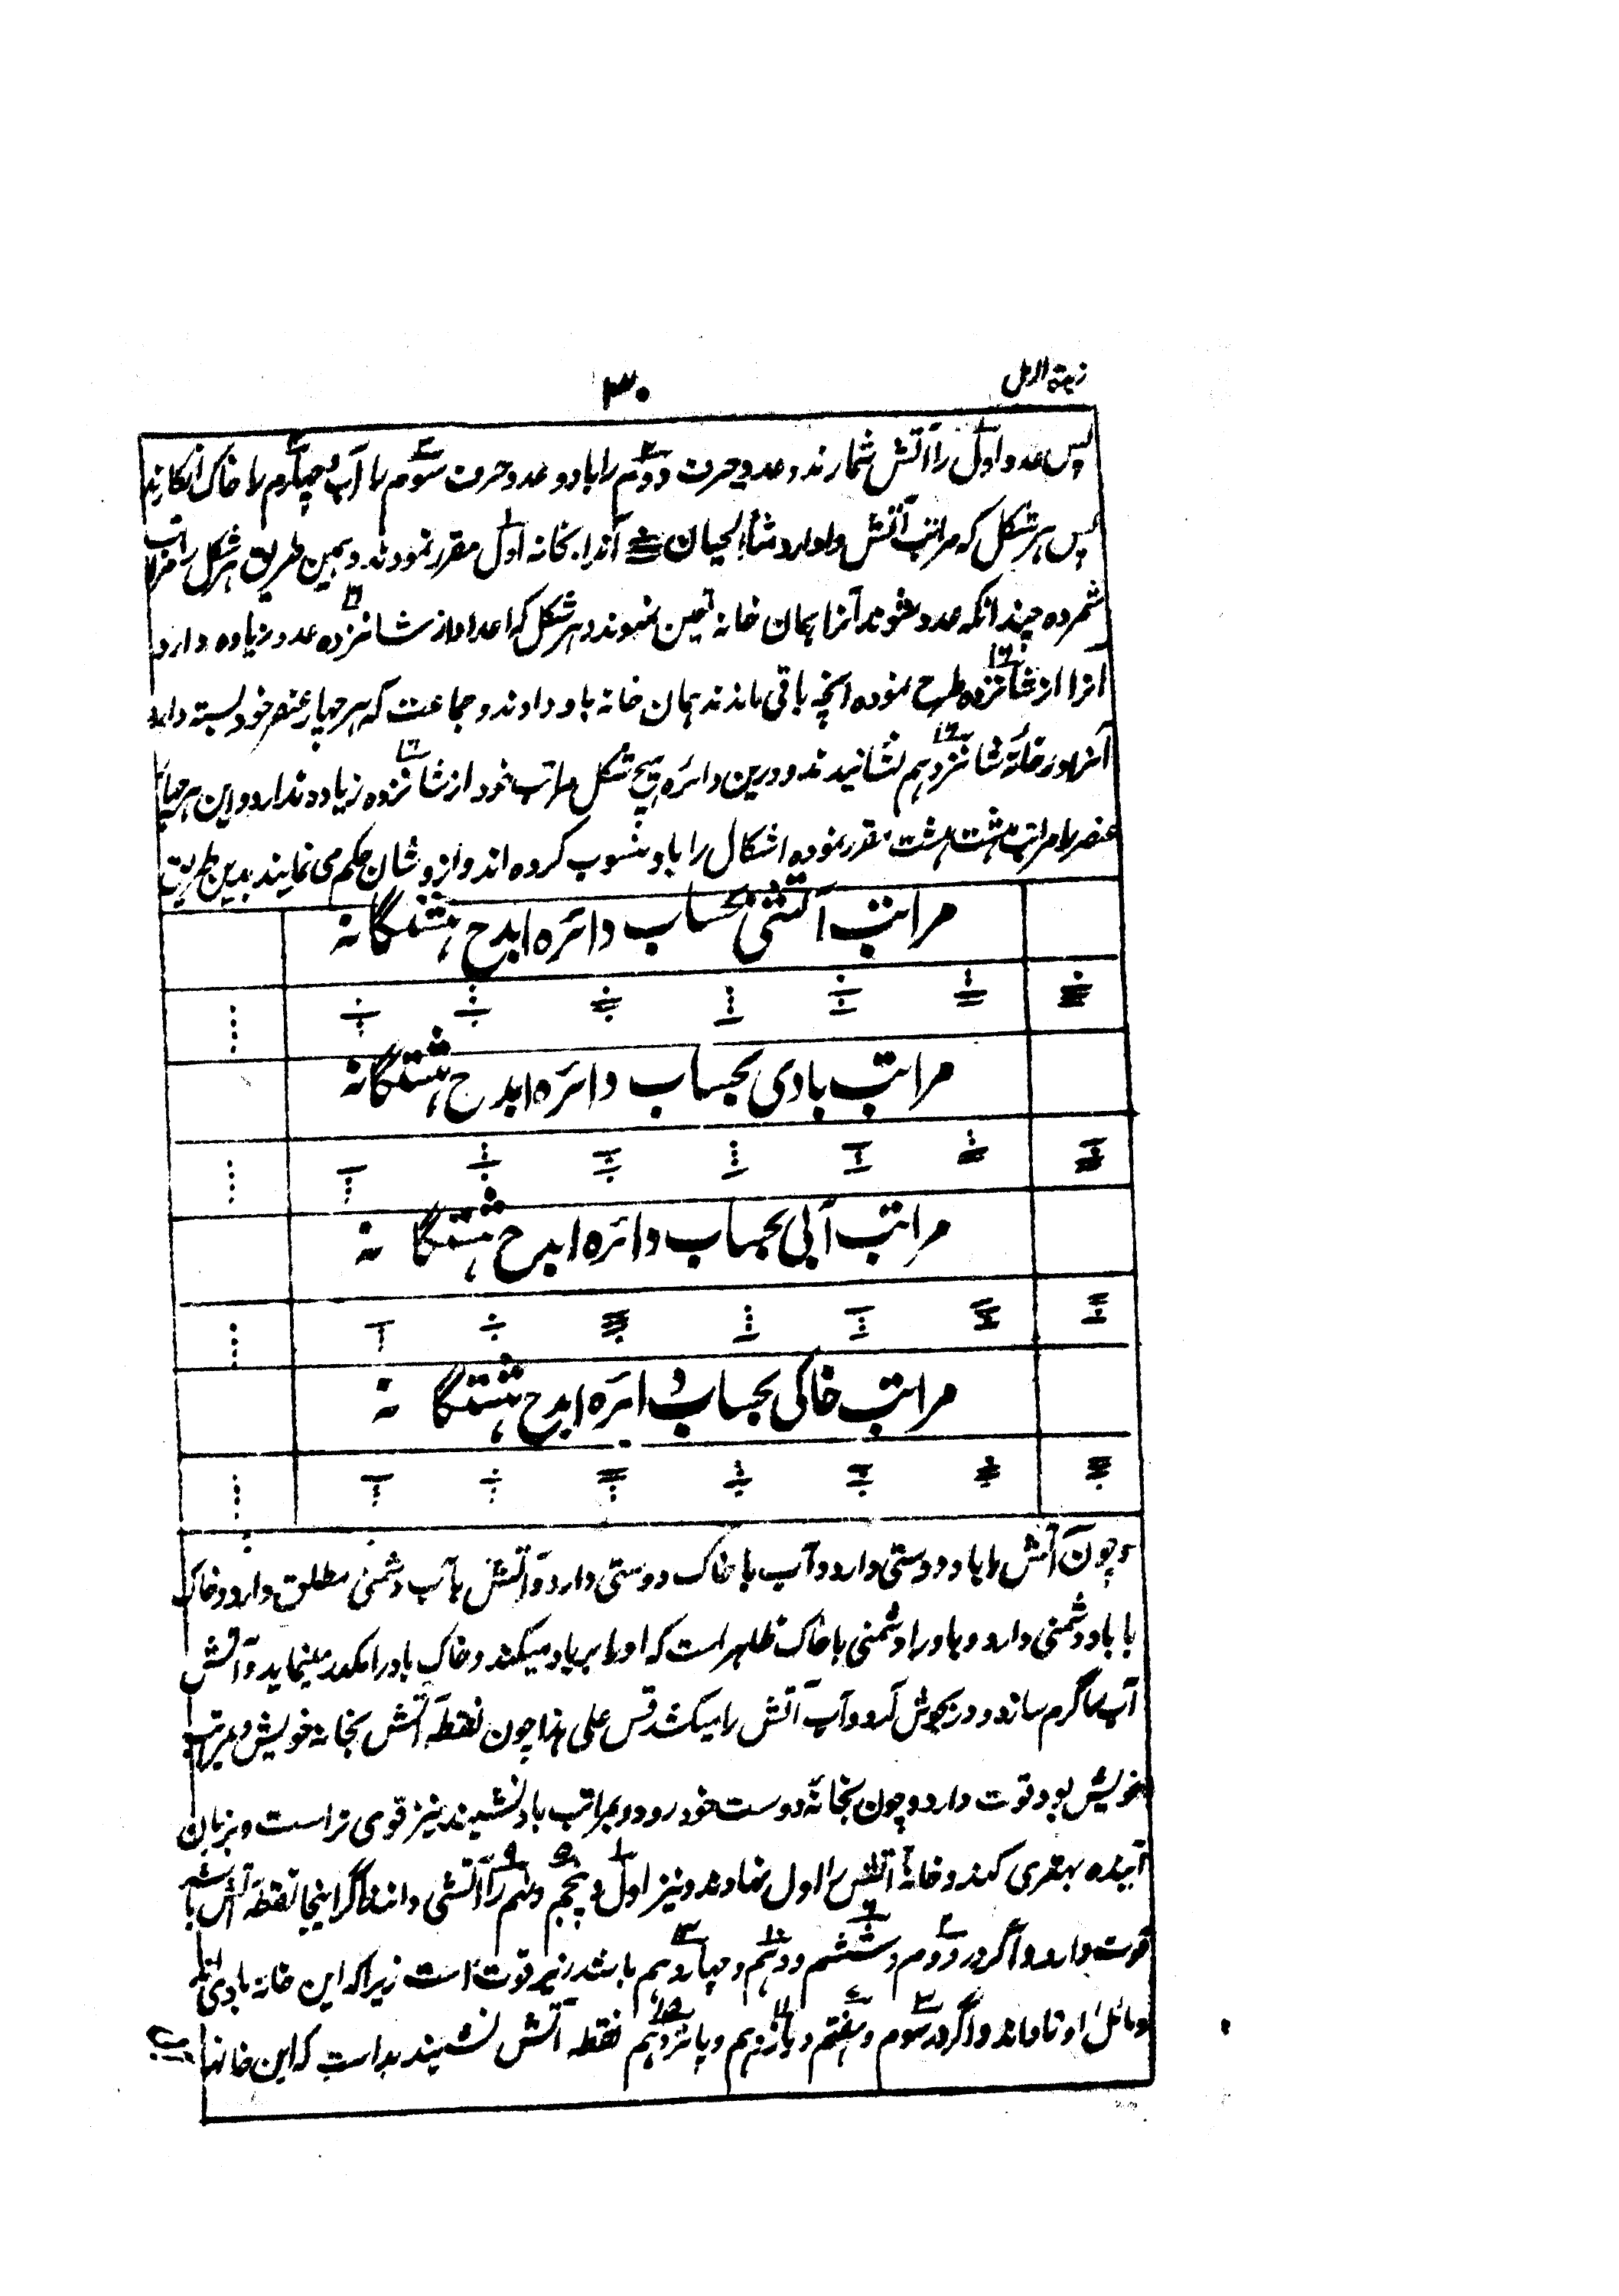 زبدة الرمل
۳۰
پس عدد اول را آتش شمارند و عدد حرف دوم را باد و عدد حرف سوم را آب و چهارم را خاک انگارند
پس هر شکل که مراتب آتش دارد مثلاً لحیان آنرا بخانه اول مقرر نمودند و بهمین طریق هر شکل را مراتب
شمرده چندانکه عدد شوند آنرا بهمان خانه تعین نمودند و هر شکل که اعداد از شانزده عدد زیاده دارد
آنرا از شانزده طرح نموده آنچه باقی ماندند همان خانه باو دادند و جماعت که هر چهار عنصر خود بسته دارد
آنرا در خانهٔ شانزدهم نشانیدند و درین دائره هیچ شکل مراتب خود از شانزده زیاده ندارد و این هر چهار
عنصر را مراتب هشت هشت مقرر نموده اشکال را باو منسوب کرده اند و ازوشان حکم می نمایند بدین طریق
مراتب آتشی بحساب دائره ابدح هشتگانه
مراتب بادی بحساب دائره ابدح هشتگانه
مراتب آبی بحساب دائره ابدح هشتگانه
مراتب خاکی بحساب دائره ابدح هشتگانه
چون آتش با باد دوستی دارد و آب با خاک دوستی دارد و آتش با آب دشمنی مطلق دارد و خاک
با باد دشمنی دارد و باد را دشمنی با خاک ظاهر است که او را برباد میکند و خاک باد را مکدر مینماید و آتش
آب را گرم سازد و در بجوش آرد و آب آتش را میکشد قس علی هذا چون نقطهٔ آتش بخانهٔ خویش و بمراتب
خویش بود قوت دارد و چون بخانهٔ دوست خود رود و بمراتب باد نشیند نیز قوی تر است و بزبان
آینده بهتری کند و خانهٔ آتش را اول نهادند و نیز اول و پنجم و نهم را آتشی دانند اگر اینجا نقطهٔ آتش باشد
قوت دارد و اگر در دوم و ششم و دهم و چهاردهم باشد نیز قوت است زیرا که این خانه بادی اند
و مائل اوتاد اند و اگر در سوم و هفتم و یازدهم و پانزدهم نقطه آتش نشیند بد است که این خانها